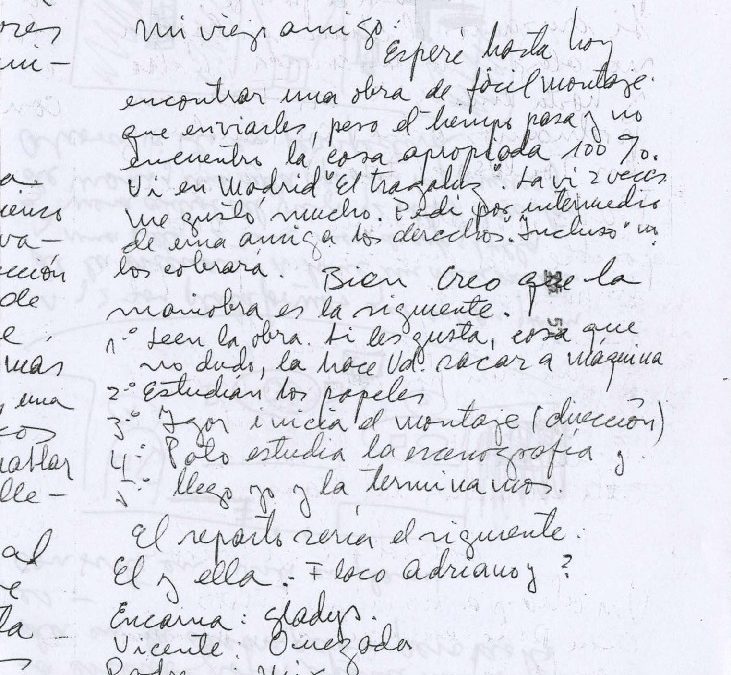 ores
mi viejo amigo:
Esperé hasta hoy
ui-
encontrar una obra de fácil montaje.
que enviarles, pero el tiempo pasa y no
encuentro la cosa apropiada 100%.
a-
Vi en Madrid "El tragaluz". La vi 2 veces
ienso
me gustó mucho. Pedí por intermedio
va-
de una amiga los derechos. "Incluso"
ección
los cobrará. Bien Creo que la
de
maniobra es la siguiente.
e
1-º Leen la obra. Si les gusta, cosa que
mas
no dudo, la hace Ud. sacar a máquina
una
2-º Estudian los papeles
cos
3-º Igor inicia el montaje (dirección)
hablar
4-º Polo estudia la escenografía y
lle-
5-º llego yo y la terminamos.
El reparto sería el siguiente:
al
El y ella.- Flaco Adriano y ?
Encarna: Gladys.
ta-
Vicente: Quezada
Padre: